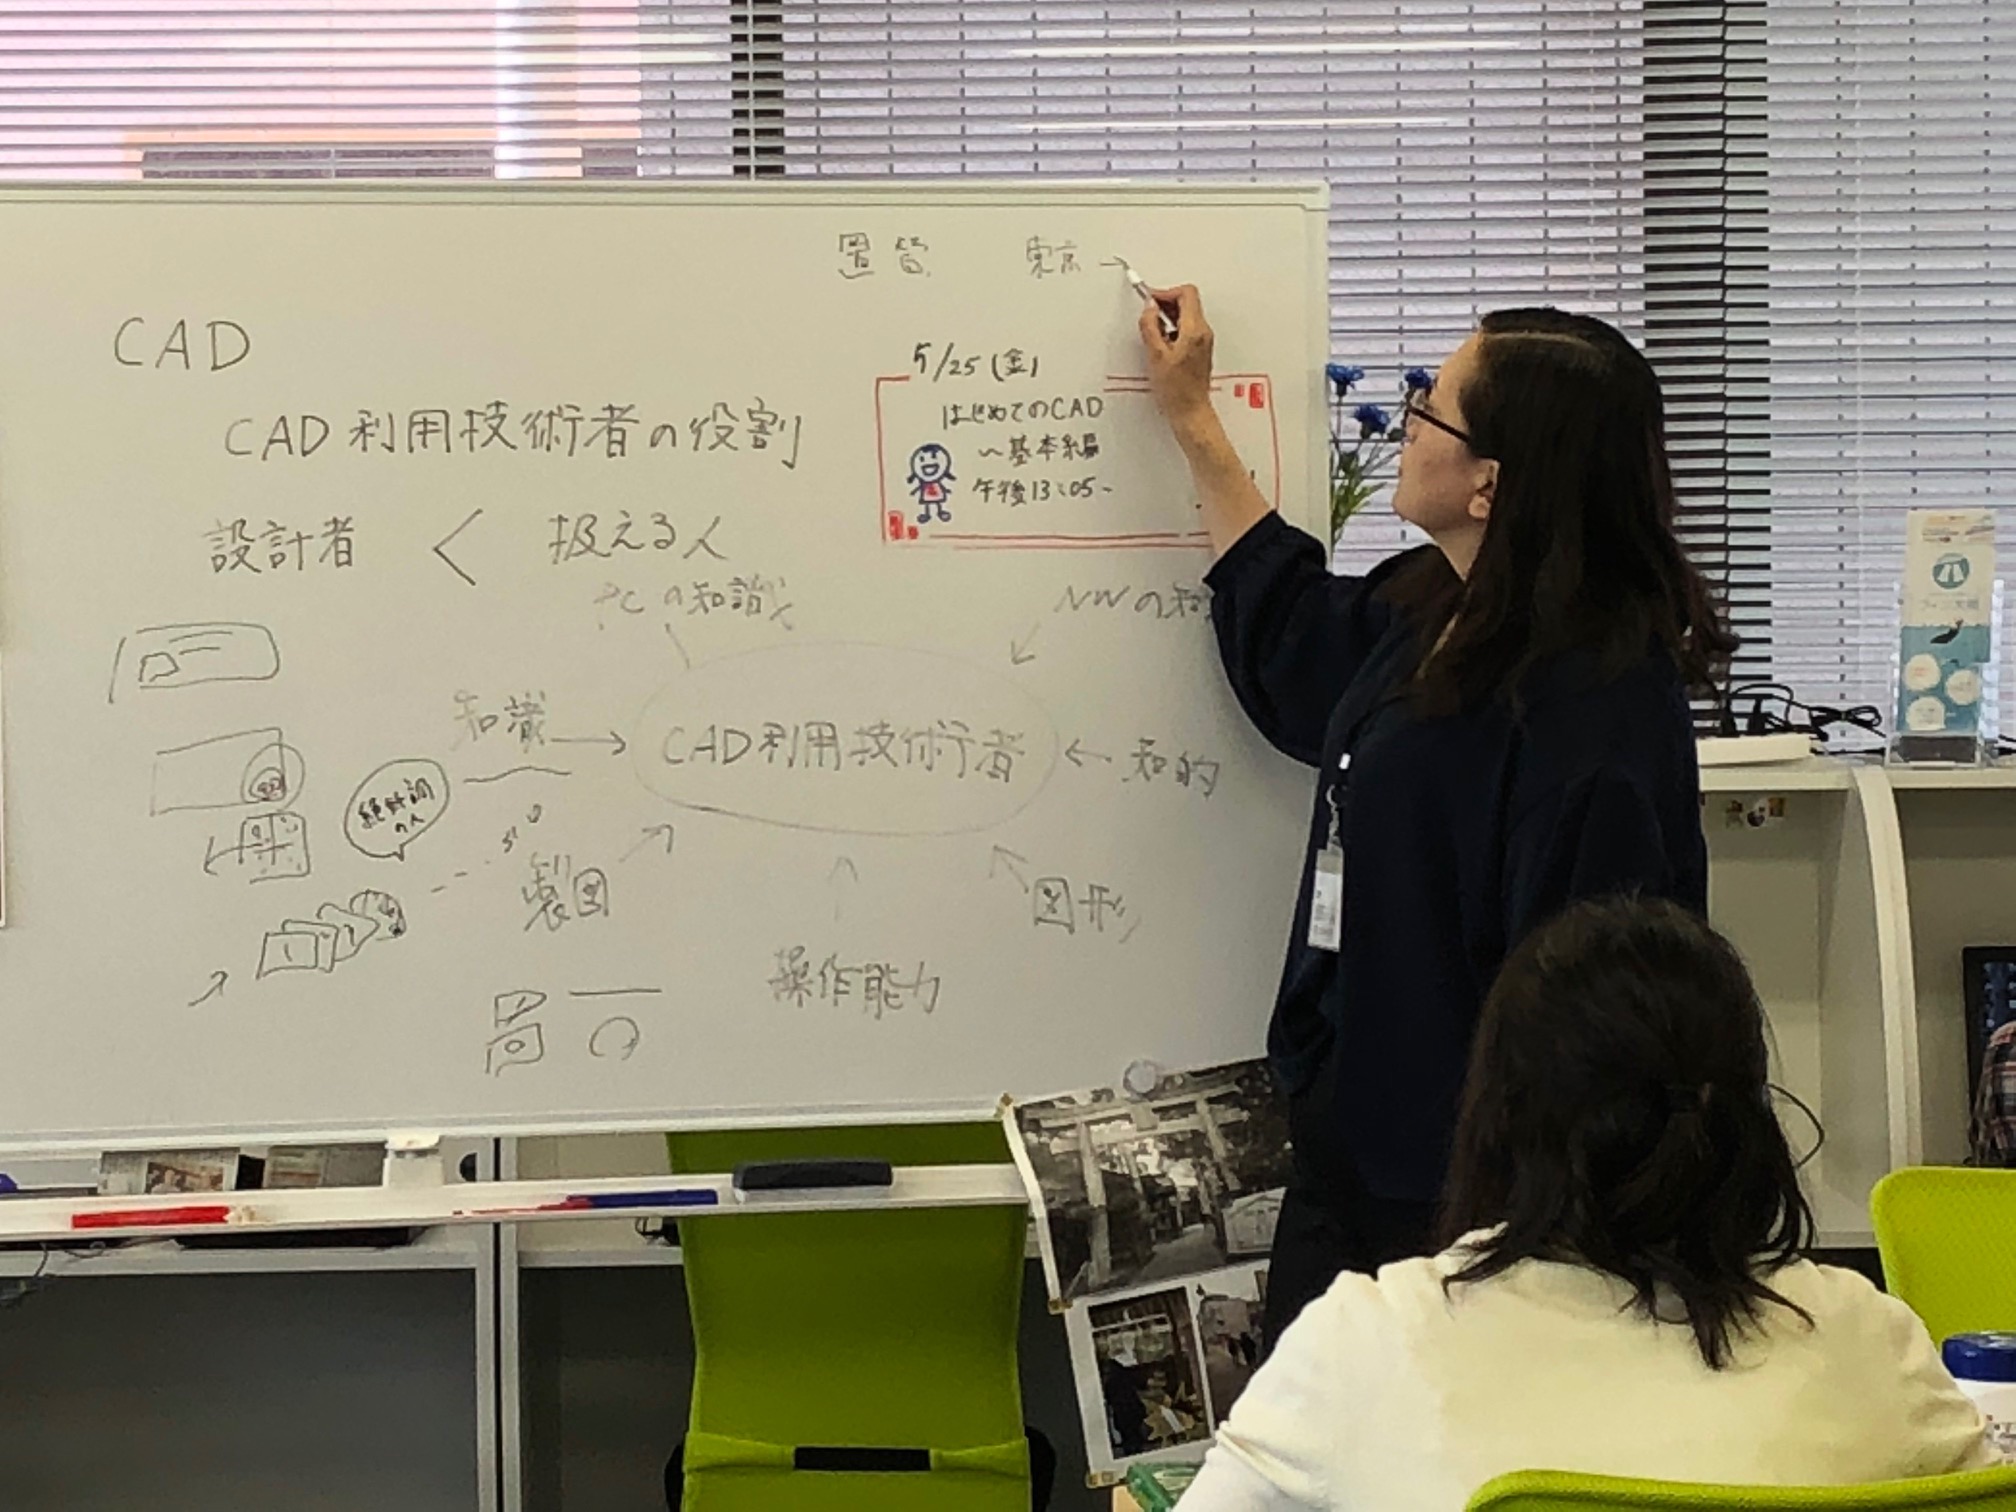 東京→
CAD
5/25(金)
はじめてのCAD
～基本編
午後13:05～
CAD利用技術者の役割
設計者 < 扱える人
PCの知識
NWの知
知識→
CAD利用技術者
←知的
製図
図形
操作能力